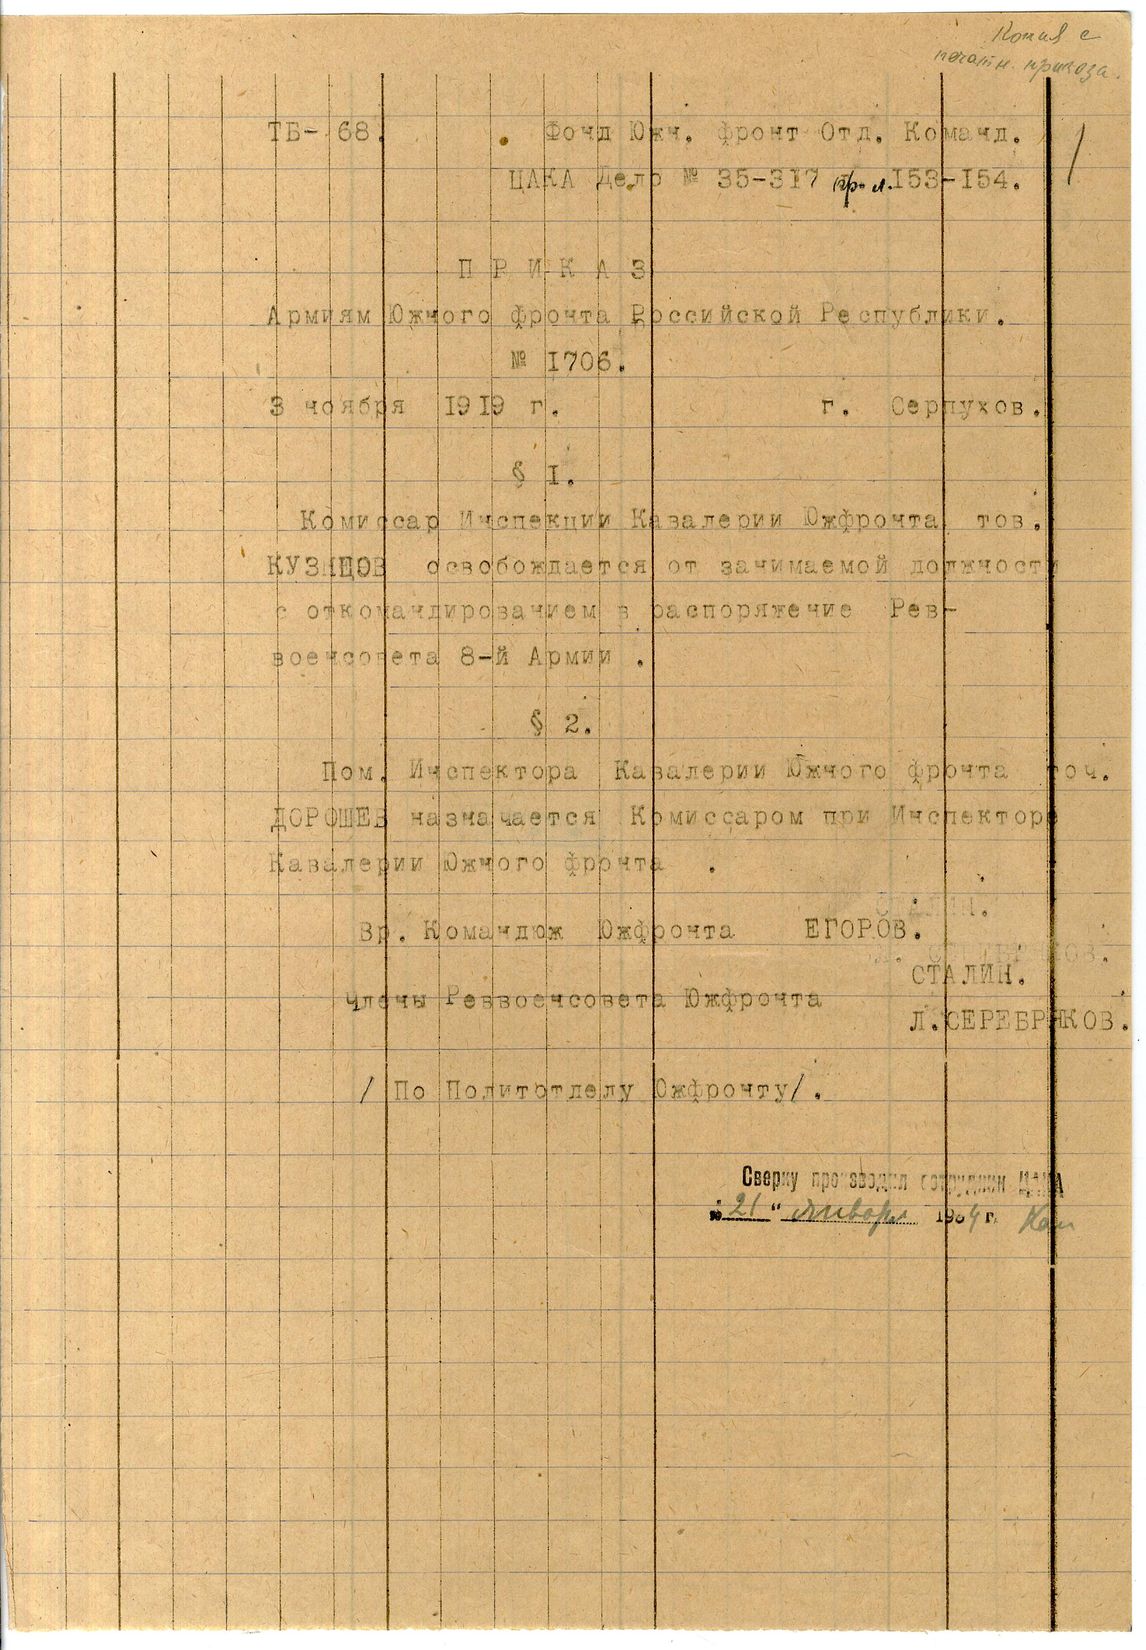 Копия с
печатн. приказа.
ТБ- 68. Фонд Южн. фронт Отд. Команд.
ЦАКА Дело № 35-317 л.153-154.
П Р И К А З
Армиям Южного фронта Российской Республики.
№ 1706.
3 ноября 1919 г. г. Серпухов.
§ I.
Комиссар Инспекции Кавалерии Южфронта тов.
КУЗНЦОВ освобождается от занимаемой должности
с откомандированием в распоряжение Рев-
военсовета 8-й Армии .
§ 2.
Пом. Инспектора Кавалерии Южного фронта точ.
ДОРОШЕВ назначается Комиссаром при Инспекторе
Кавалерии Южного фронта .
СТАЛИН.
Вр. Командюж Южфронта ЕГОРОВ.
Л. СЕРЕБРЯКОВ.
СТАЛИН.
Члены Реввоенсовета Южфронта
Л.СЕРЕБРЯКОВ.
/ По Политотделу Южфронту/.
Сверку производил сотрудник ЦАКА
„21" января 1934 г.